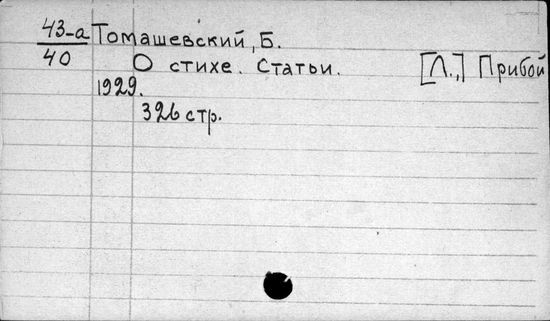 43-а Томашевский, Б.
40 О стихе. Статьи. [Л.,] Прибой
1929.
326 стр.